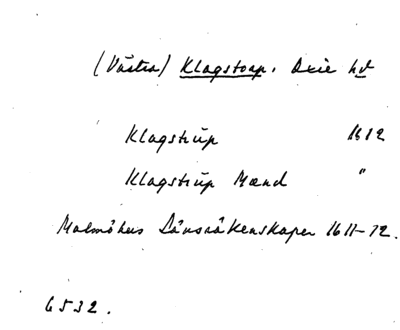 (Västra) Klagstorp. Oxie hd
Klagstrup 1612
Klagstrup Mænd "
Malmöhus Länsräkenskaper 1611-12.
6532.